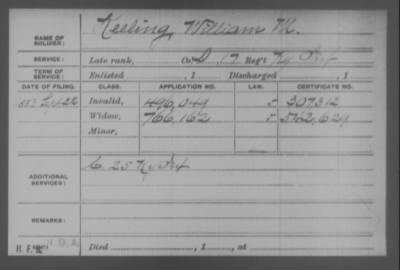 Keeling, William M.
NAME OF SOLDIER:
SERVICE: Late rank, Co. D, 17 Reg't Ky Inf
TERM OF SERVICE: Enlisted , 1 Discharged , 1
DATE OF FILING. CLASS. APPLICATION NO. LAW. CERTIFICATE NO.
Invalid, 496,049 307,312
Widow, 766,162
Minor,
ADDITIONAL SERVICES: C. 25 Ky Inf
REMARKS:
Died , 1 , at